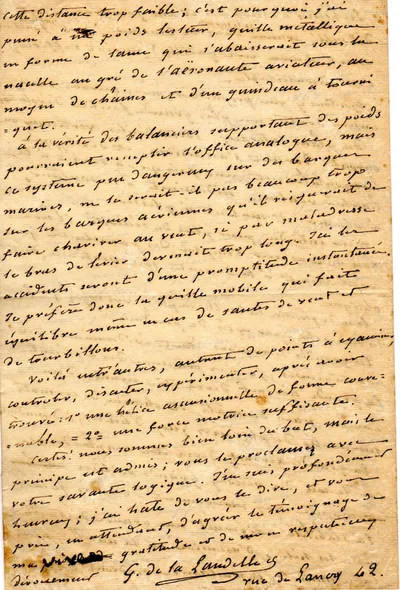 cette distance trop faible; c'est pourquoi j'ai
pensé à un poids lesteur, quille métallique
en forme de lame qui s'abaisserait sous la
nacelle au gré de l'aëronaute aviateur, au
moyen de chaînes et d'un guindeau à tourni
=quet.
à la vérité des balanciers supportant des poids
pourraient remplir l'office analogue, mais
ce système peu dangereux sur des barques
marines, ne le serait-il pas beaucoup trop
sur les barques aériennes qu'il risquerait de
faire chavirer au vent, si par maladresse
le bras de levier devenait trop long. Ici les
accidents seront d'une promptitude instantanée.
Je préfère donc la quille mobile qui fait
équilibre même en cas de sautes de vent et
de tourbillons.
Voilà entr'autres, autant de points à examiner,
controler, discuter, expérimenter, après avoir
trouvé: 1º une hélice ascensionnelle de forme conve-
=nable, = 2º une force motrice suffisante.
Certes! nous sommes bien loin du but, mais le
principe est admis; vous le proclamez avec
votre savante logique. J'en suis profondément
heureux; j'ai hâte de vous le dire, et vous
prie, en attendant, d'agréer le témoignage de
ma gratitude et de mon respectueux
dévouement
G. de la Landelle
rue de Lancry 42.